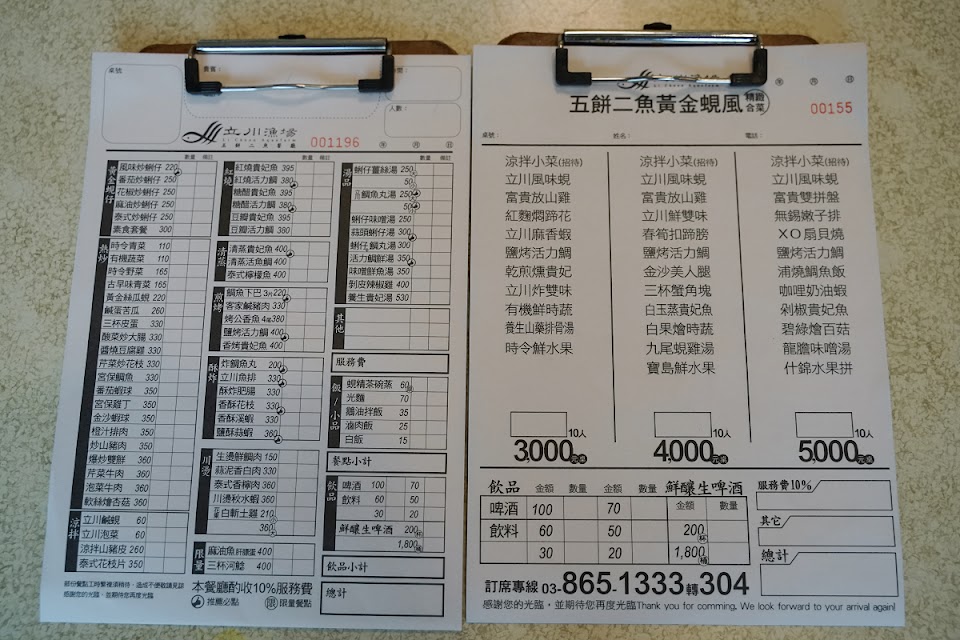 桌號
貴賓:
時間:
人數:
立川漁場
五餅二魚餐廳
001196
年 月 日
數量 備註
數量 備註
數量 備註
黃金蜆仔
風味炒蜊仔 220
番茄炒蜊仔 250
花椒炒蜊仔 250
麻油炒蜊仔 250
泰式炒蜊仔 250
素食套餐 300
熱炒
時令青菜 110
有機蔬菜 110
時令野菜 165
古早味青菜 165
黃金絲瓜蜆 220
鹹蛋苦瓜 260
三杯皮蛋 330
酸菜炒大腸 330
醬燒豆腐雞 330
芹菜炒花枝 330
宮保鯛魚 330
番茄蝦球 350
宮保雞丁 350
金沙蝦球 350
橙汁排肉 350
炒山豬肉 350
爆炒雙鮮 360
芹菜牛肉 360
泡菜牛肉 360
軟絲燴杏菇 360
涼拌
立川鹹蜆 60
立川泡菜 60
涼拌山豬皮 260
泰式花枝片 350
紅燒
紅燒貴妃魚 395
紅燒活力鯛 380
糖醋貴妃魚 395
糖醋活力鯛 380
豆瓣貴妃魚 395
豆瓣活力鯛 380
清蒸
清蒸貴妃魚 400
清蒸活魚鯛 400
泰式檸檬魚 400
煎烤
鯛魚下巴 3片 220
客家鹹豬肉 330
烤公香魚 4尾 380
鹽烤活力鯛 400
香烤貴妃魚 400
酥炸
炸鯛魚丸 200
立川魚排 330
酥炸肥腸 330
香酥花枝 330
香酥溪蝦 330
鹽酥蒜蝦 360
川燙
生燙鮮鯛肉 150
蒜泥香白肉 330
泰式香檸肉 360
川燙秋水蝦 360
白斬土雞 210
360
限量
麻油魚 400
三杯河鯰 400
湯品
蜊仔薑絲湯 250
50
鯛魚丸湯 250
50
蜊仔味噌湯 250
蒜頭蜊仔湯 300
蜊仔鯛丸湯 300
活力鯛鮮湯 350
味噌鮮魚湯 350
剝皮辣椒雞 400
養生貴妃湯 530
其他
服務費
飯/小品
蜆精茶碗蒸 60
光麵 70
鵝油拌飯 35
滷肉飯 25
白飯 15
餐點小計
飲品
啤酒 100 70
飲料 60 50
30 20
鮮釀生啤酒 200杯
1,800桶
飲品小計
總計
部份餐點工時繁複須稍待,造成不便敬請見諒
感謝您的光臨,並期待您再度光臨
本餐廳酌收10%服務費
推薦必點 限 限量餐點
立川漁場
五餅二魚黃金蜆風 精緻合菜
年 月 日
00155
桌號: 姓名: 電話:
涼拌小菜(招待)
立川風味蜆
富貴放山雞
紅麴燜蹄花
立川麻香蝦
鹽烤活力鯛
乾煎燻貴妃
立川炸雙味
有機鮮時蔬
養生山藥排骨湯
時令鮮水果
10人
3,000元/桌
涼拌小菜(招待)
立川風味蜆
富貴放山雞
立川鮮雙味
春筍扣蹄膀
鹽烤活力鯛
金沙美人腿
三杯蟹角塊
白玉蒸貴妃魚
白果燴時蔬
九尾蜆雞湯
寶島鮮水果
10人
4,000元/桌
涼拌小菜(招待)
立川風味蜆
富貴雙拼盤
無錫嫩子排
XO扇貝燒
鹽烤活力鯛
浦燒鯛魚飯
咖哩奶油蝦
剁椒貴妃魚
碧綠燴百菇
龍膽味噌湯
什錦水果拼
10人
5,000元/桌
飲品 金額 數量 金額 數量 鮮釀生啤酒
啤酒 100 70 金額 數量
飲料 60 50 200杯
30 20 1,800桶
服務費10%
其它
總計
訂席專線 03-865-1333轉304
感謝您的光臨,並期待您再度光臨Thank you for comming. We look forward to your arrival again!